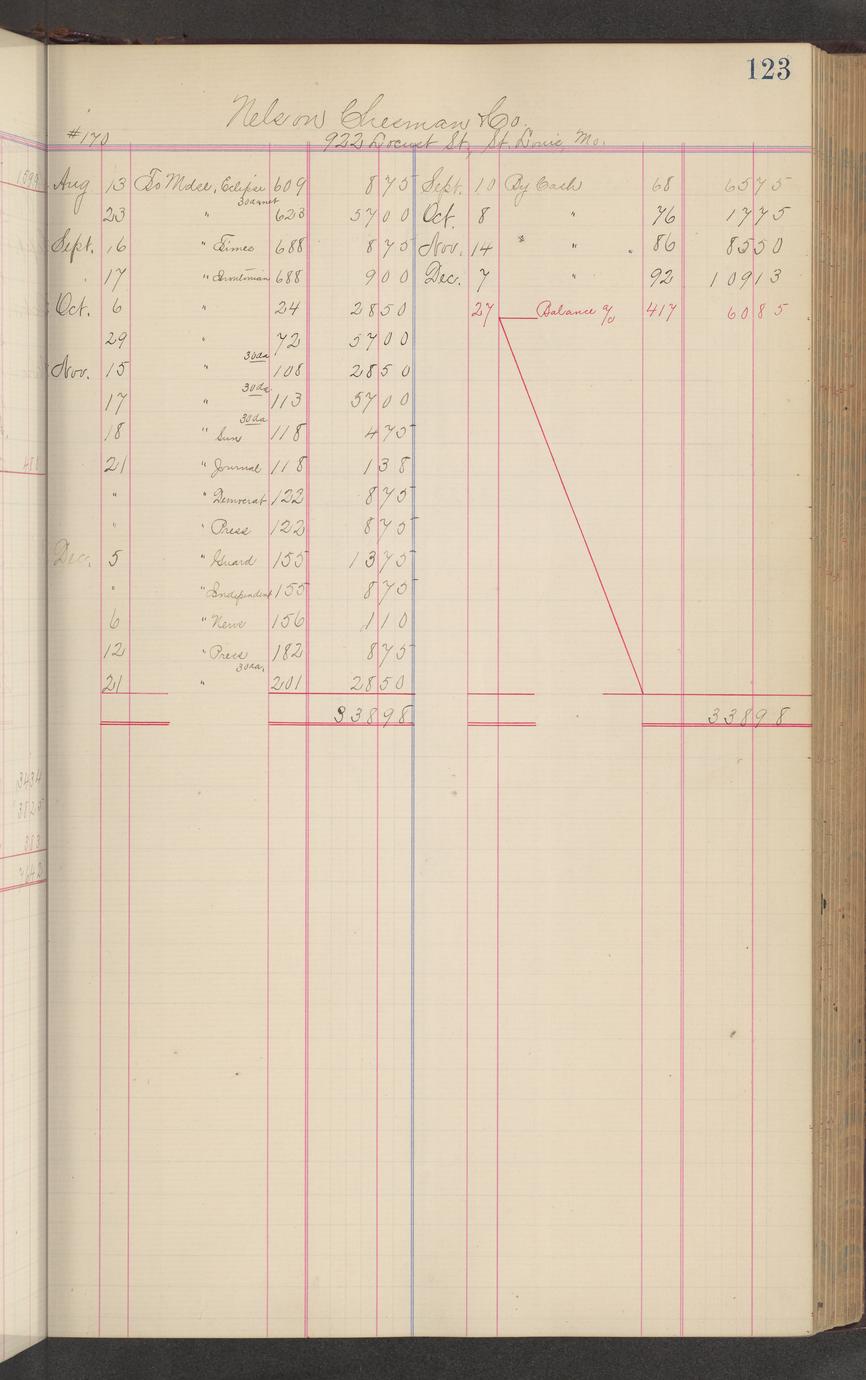 123
Nelson Chesman & Co.
#170 922 Locust St, St. Louis, Mo.
Aug 13 To Mdse, Eclipse 609 8 75 Sept. 10 By Cash 68 65 75
23 " 30 da net 623 57 00 Oct. 8 " 76 17 75
Sept. 16 " Times 688 8 75 Nov. 14 " " 86 85 50
17 " 688 9 00 Dec. 7 " 92 109 13
Oct. 6 " 24 28 50 27 Balance % 417 60 85
29 " 72 57 00
Nov. 15 " 30 da 108 28 50
17 " 30 da 113 57 00
18 " Sun 30 da 118 4 75
21 " Journal 118 1 38
" " Democrat 122 8 75
" " Press 122 8 75
Dec. 5 " Guard 155 13 75
" " Independent 155 8 75
6 " Nerve 156 1 10
12 " Press 182 8 75
21 " 30 da. 201 28 50
338 98 338 98
3434
3825
383
7642